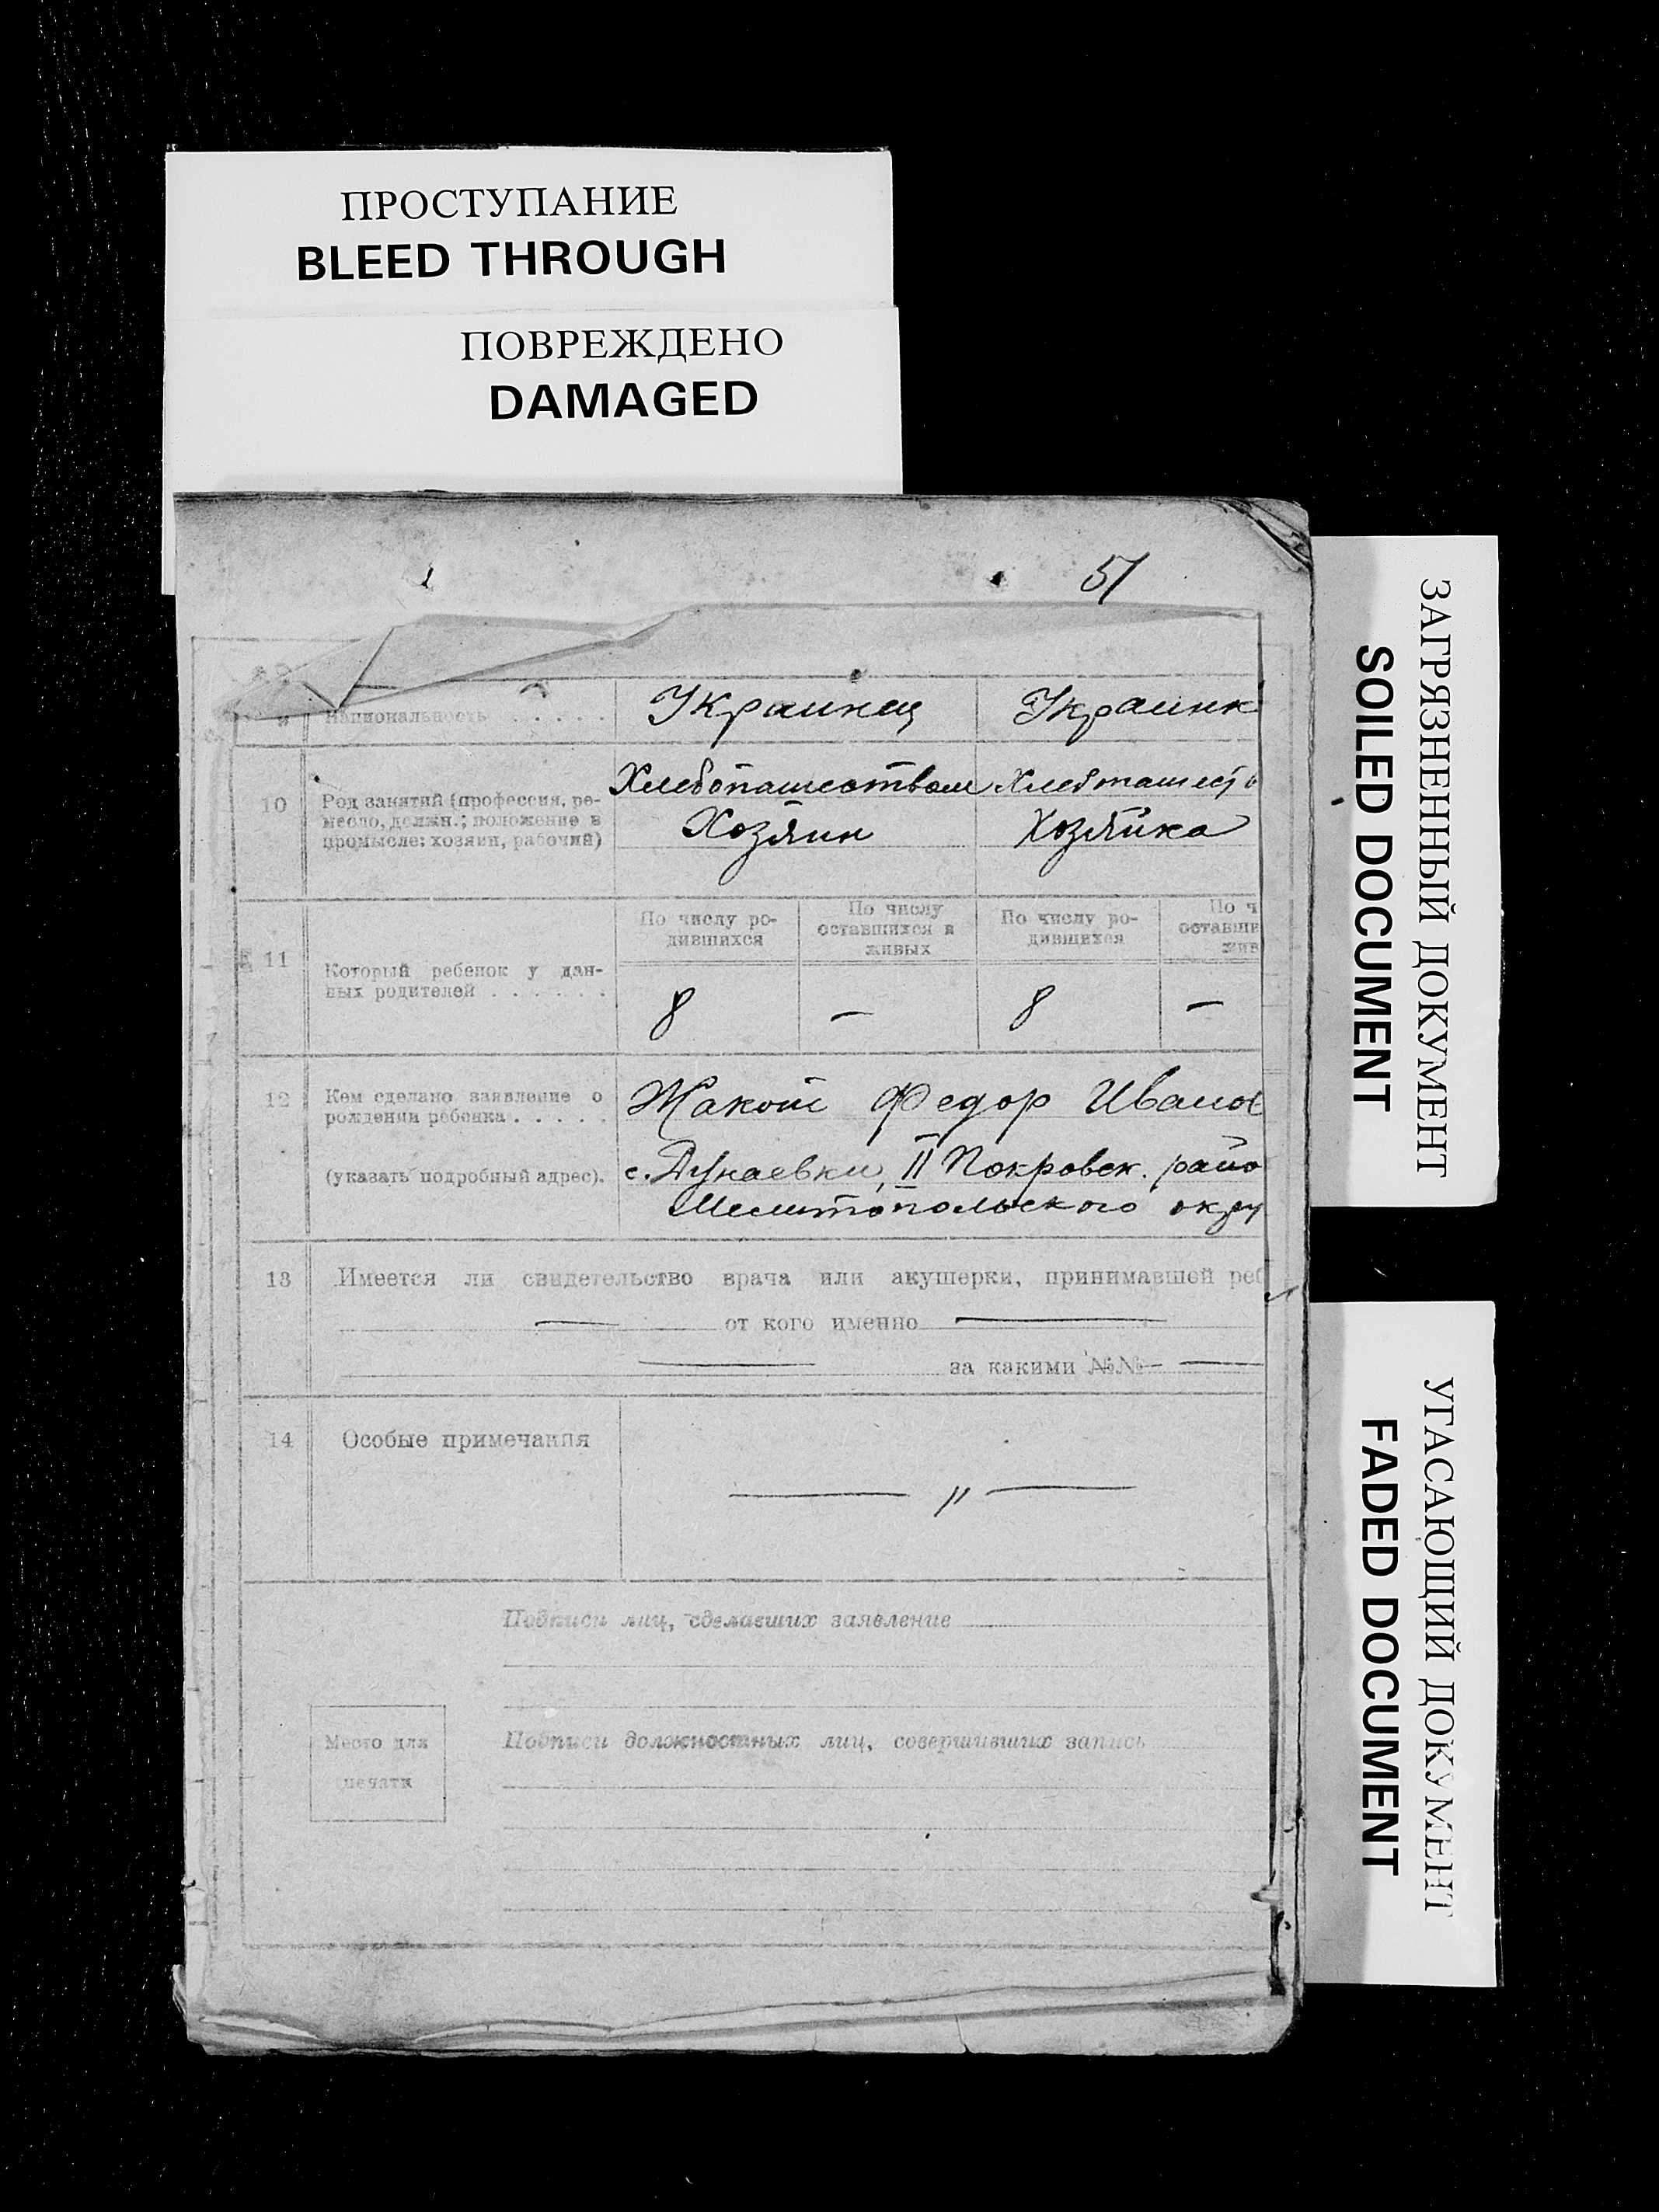 ПРОСТУПАНИЕ
BLEED THROUGH
ПОВРЕЖДЕНО
DAMAGED
51
9 Национальность . . . . . Украинец Украинк
10 Род занятий (профессия, ре-
месло, должн.; положение в
промысле: хозяин, рабочий)
Хлебопашеством Хлебопашест
Хозяин Хозяйка
11 Который ребенок у дан-
ных родителей . . . . . .
По числу ро-
дившихся
По числу
оставшихся в
живых
По числу ро-
дившихся
По ч
оставши
жив
8 — 8 —
12 Кем сделано заявление о
рождении ребенка . . . . .
(указать подробный адрес).
Жакот Федор Иванов
с. Дунаевки, II Покровск. райо
Мелитопольского окру
13 Имеется ли свидетельство врача или акушерки, принимавшей реб
— от кого именно —
— за какими №№ —
14 Особые примечания
— " —
Подписи лиц, сделавших заявление
Место для
печати
Подписи должностных лиц, совершивших запись
ЗАГРЯЗНЕННЫЙ ДОКУМЕНТ
SOILED DOCUMENT
УГАСАЮЩИЙ ДОКУМЕНТ
FADED DOCUMENT